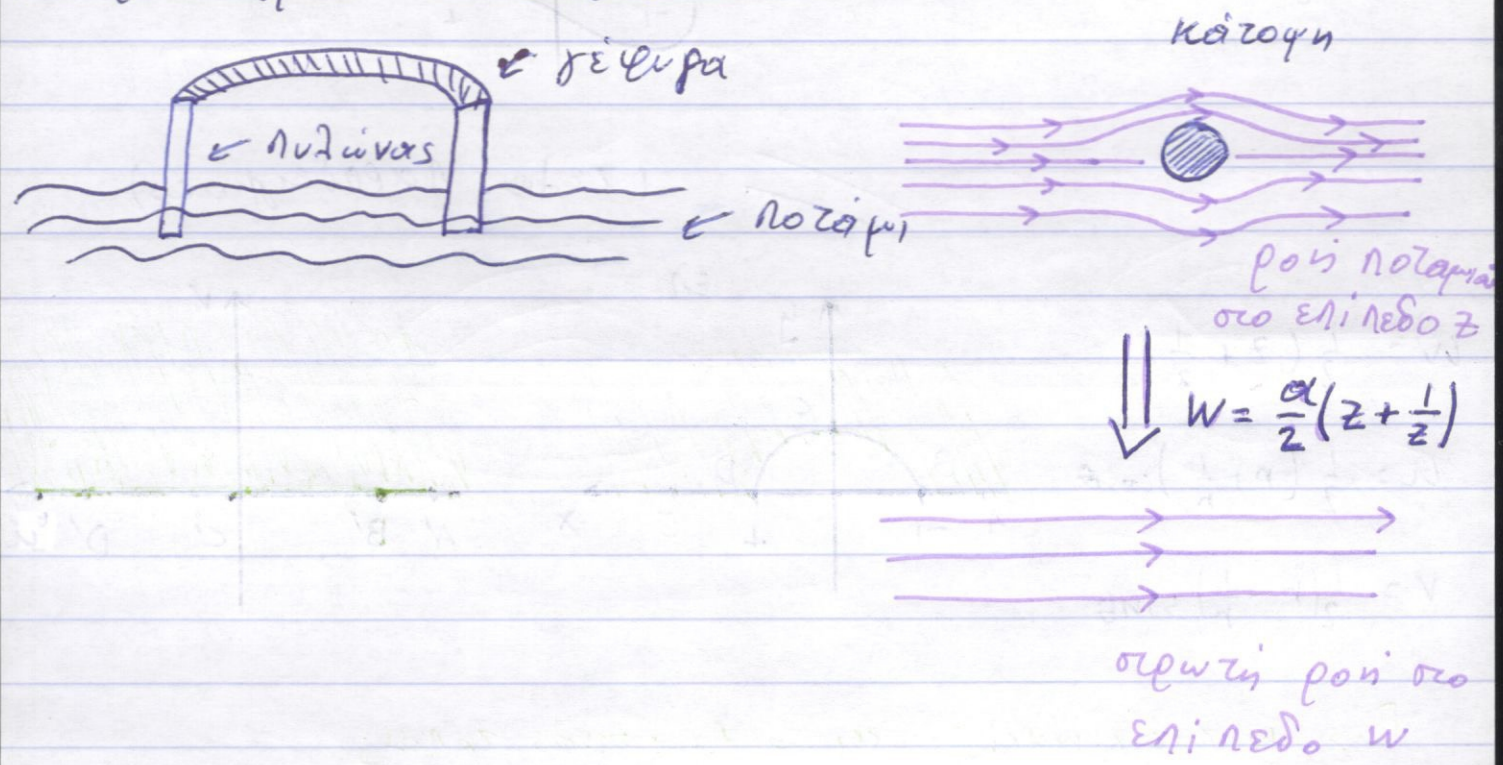 κάτοψη
γέφυρα
πυλώνας
ποτάμι
ροή ποταμιού
στο επίπεδο z
W = α/2 (z + 1/z)
στρωτή ροή στο
επίπεδο w